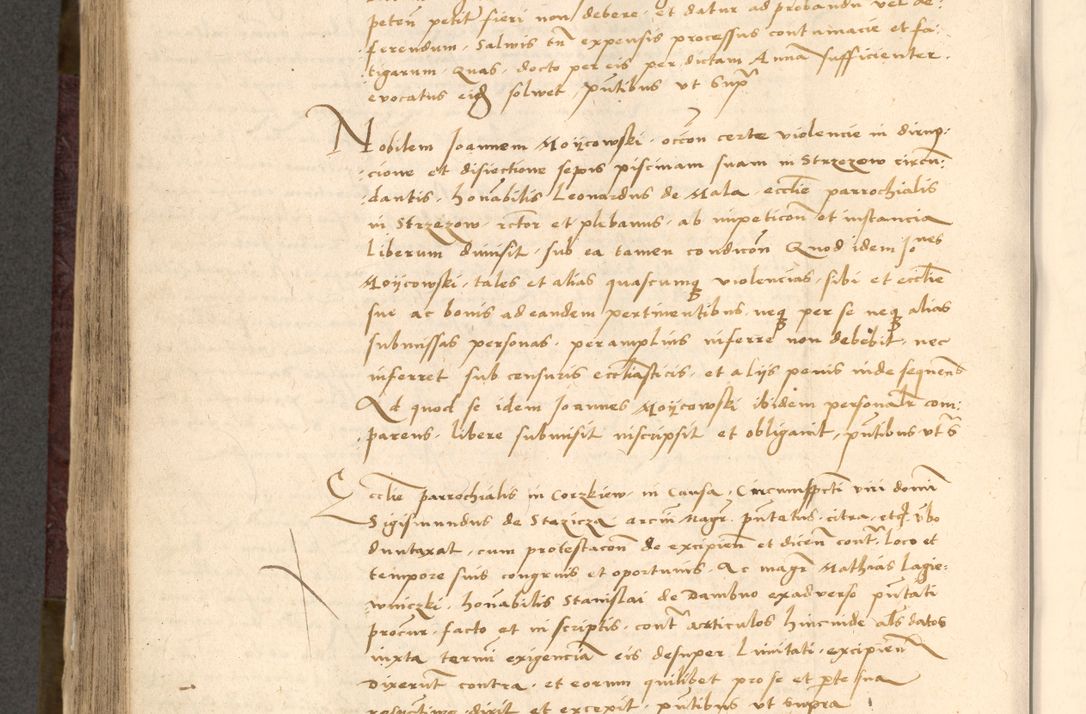 peten petit fieri non debere, et datur ad probandu vel de
ferendum, Salwis tn expensis processus contumacie et fa:
tigarum, quas, docto per eis per dictam Anna sufficienter
evocatus eidem solwet, pntibus ut supra
Nobilem Joannem Moycowski, occon certe violencie in dirup:
cione et disiectione sepis piscinam suam in Strzezow circu:
dantis, honabilis Leonardus de Mala ecclie parrochialis
in Strzezow, rctor et plebanus, ab impeticon et instancia
Liberum dimisit, sub ea tamen condicon Quod idem Joanes
Moycowski, tales et alias quascumq violencias, sibi et ecclie
sue ac bonis ad eandem pertinentibus, neq per se neq alias
submissas personas, per amplius inferre non debebit, nec
inferret sub censuris eccliasticis, et alijs penis inde sequen
Ad quod se idem Joannes Moycowski ibidem personalr com:
parens, libere submisit inscripsit et obligavit, pntibus ut s
Ecclie parrochialis in Corzkiew, in Causa, Circumspcti viri domi
Sigismundus de Stazicza arcm Magr. pntatus, citra, etc. vbo
duntaxat, cum protestacon de excipien et dicen cont, loco et
tempore suis congruis et oportunis, Ac magr Mathias Lagie:
wniczki, honabilis Stanislai de Dambno ex adverso pntati
procur, facto et in scriptis, cont articulos hincinde als datos
iuxta termi exigencia eis desuper Limitati, excipien
dixerunt contra, et eorum quilibet pro se et parte sua
dixit et excepit, pntibus ut supra